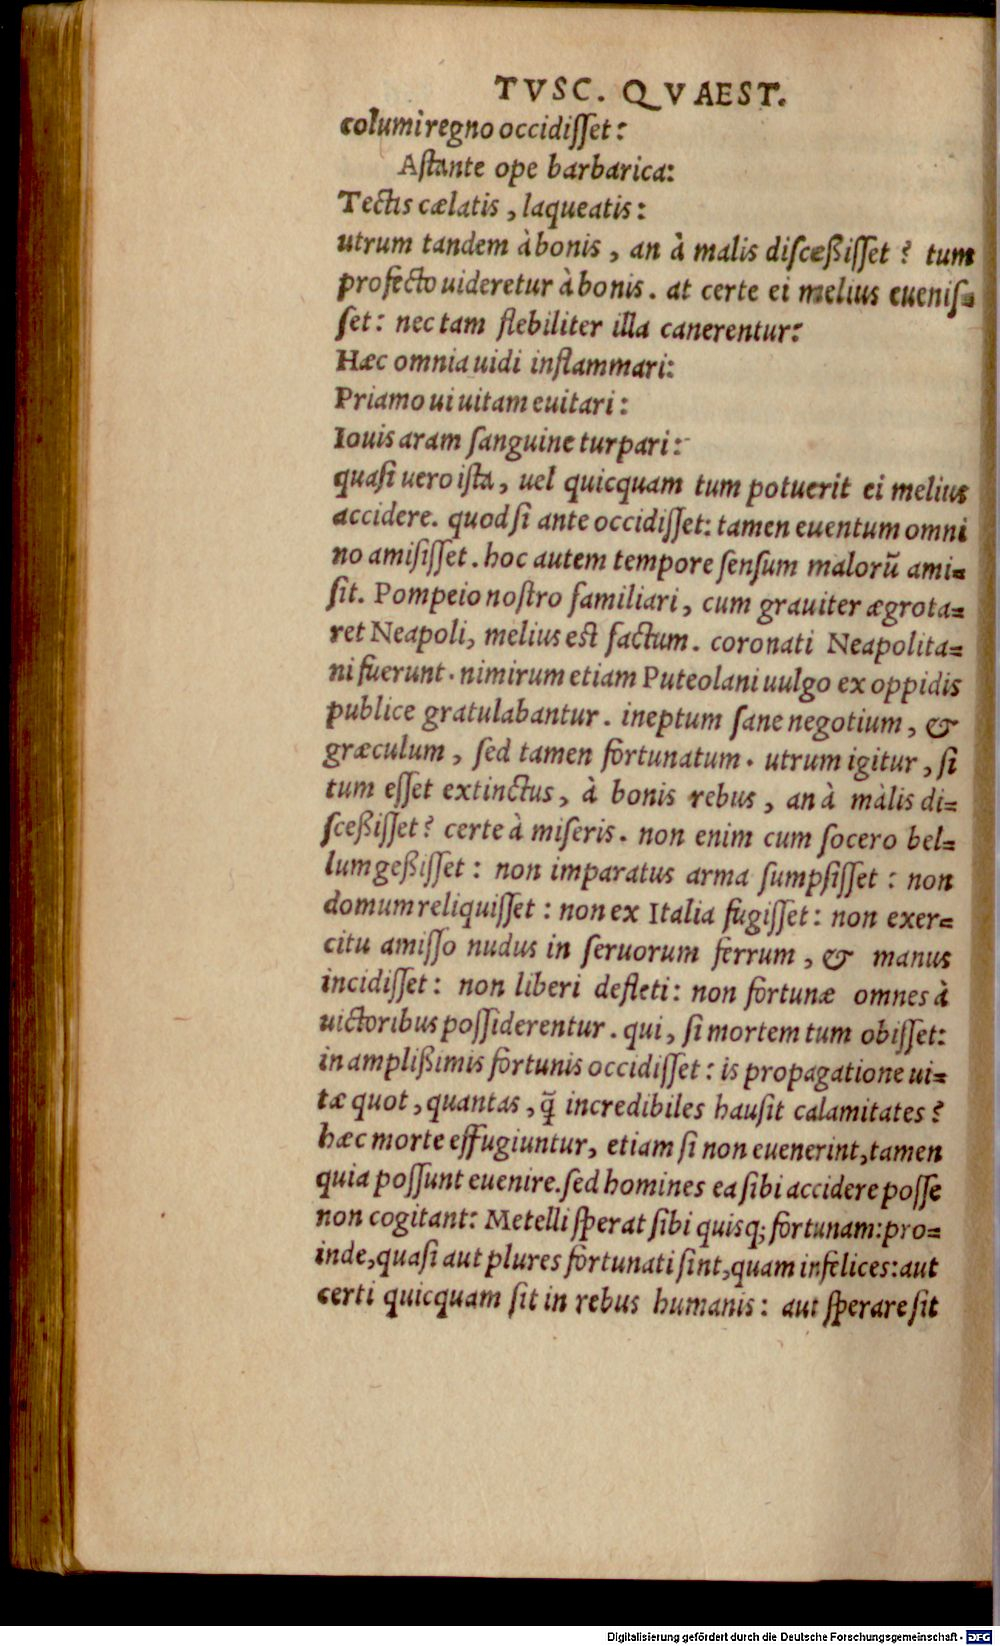 TVSC. QVAEST.
columi regno occidiſſet:
Aſtante ope barbarica:
Tectis cælatis, laqueatis:
utrum tandem à bonis, an à malis diſceßiſſet? tum
profecto uideretur à bonis. at certe ei melius eueniſ-
ſet: nec tam flebiliter illa canerentur:
Hæc omnia uidi inflammari:
Priamo ui uitam euitari:
Iouis aram ſanguine turpari:
quaſi uero iſta, uel quicquam tum potuerit ei melius
accidere. quod ſi ante occidiſſet: tamen euentum omni
no amiſiſſet. hoc autem tempore ſenſum malorū ami-
ſit. Pompeio noſtro familiari, cum grauiter ægrota-
ret Neapoli, melius est factum. coronati Neapolita-
ni fuerunt. nimirum etiam Puteolani uulgo ex oppidis
publice gratulabantur. ineptum ſane negotium, &
græculum, ſed tamen fortunatum. utrum igitur, ſi
tum eſſet extinctus, à bonis rebus, an à màlis di-
ſceßiſſet? certe à miſeris. non enim cum ſocero bel-
lum geßiſſet: non imparatus arma ſumpſiſſet: non
domum reliquiſſet: non ex Italia fugiſſet: non exer-
citu amiſſo nudus in ſeruorum ferrum, & manus
incidiſſet: non liberi defleti: non fortunæ omnes à
uictoribus poſſiderentur. qui, ſi mortem tum obiſſet:
in amplißimis fortunis occidiſſet: is propagatione ui-
tæ quot, quantas, q̃ incredibiles hauſit calamitates?
hæc morte effugiuntur, etiam ſi non euenerint, tamen
quia poſſunt euenire. ſed homines ea ſibi accidere poſſe
non cogitant: Metelli ſperat ſibi quisq; fortunam: pro-
inde, quaſi aut plures fortunati ſint, quam infelices: aut
certi quicquam ſit in rebus humanis: aut ſperare ſit
Digitalisierung gefördert durch die Deutsche Forschungsgemeinschaft - DFG